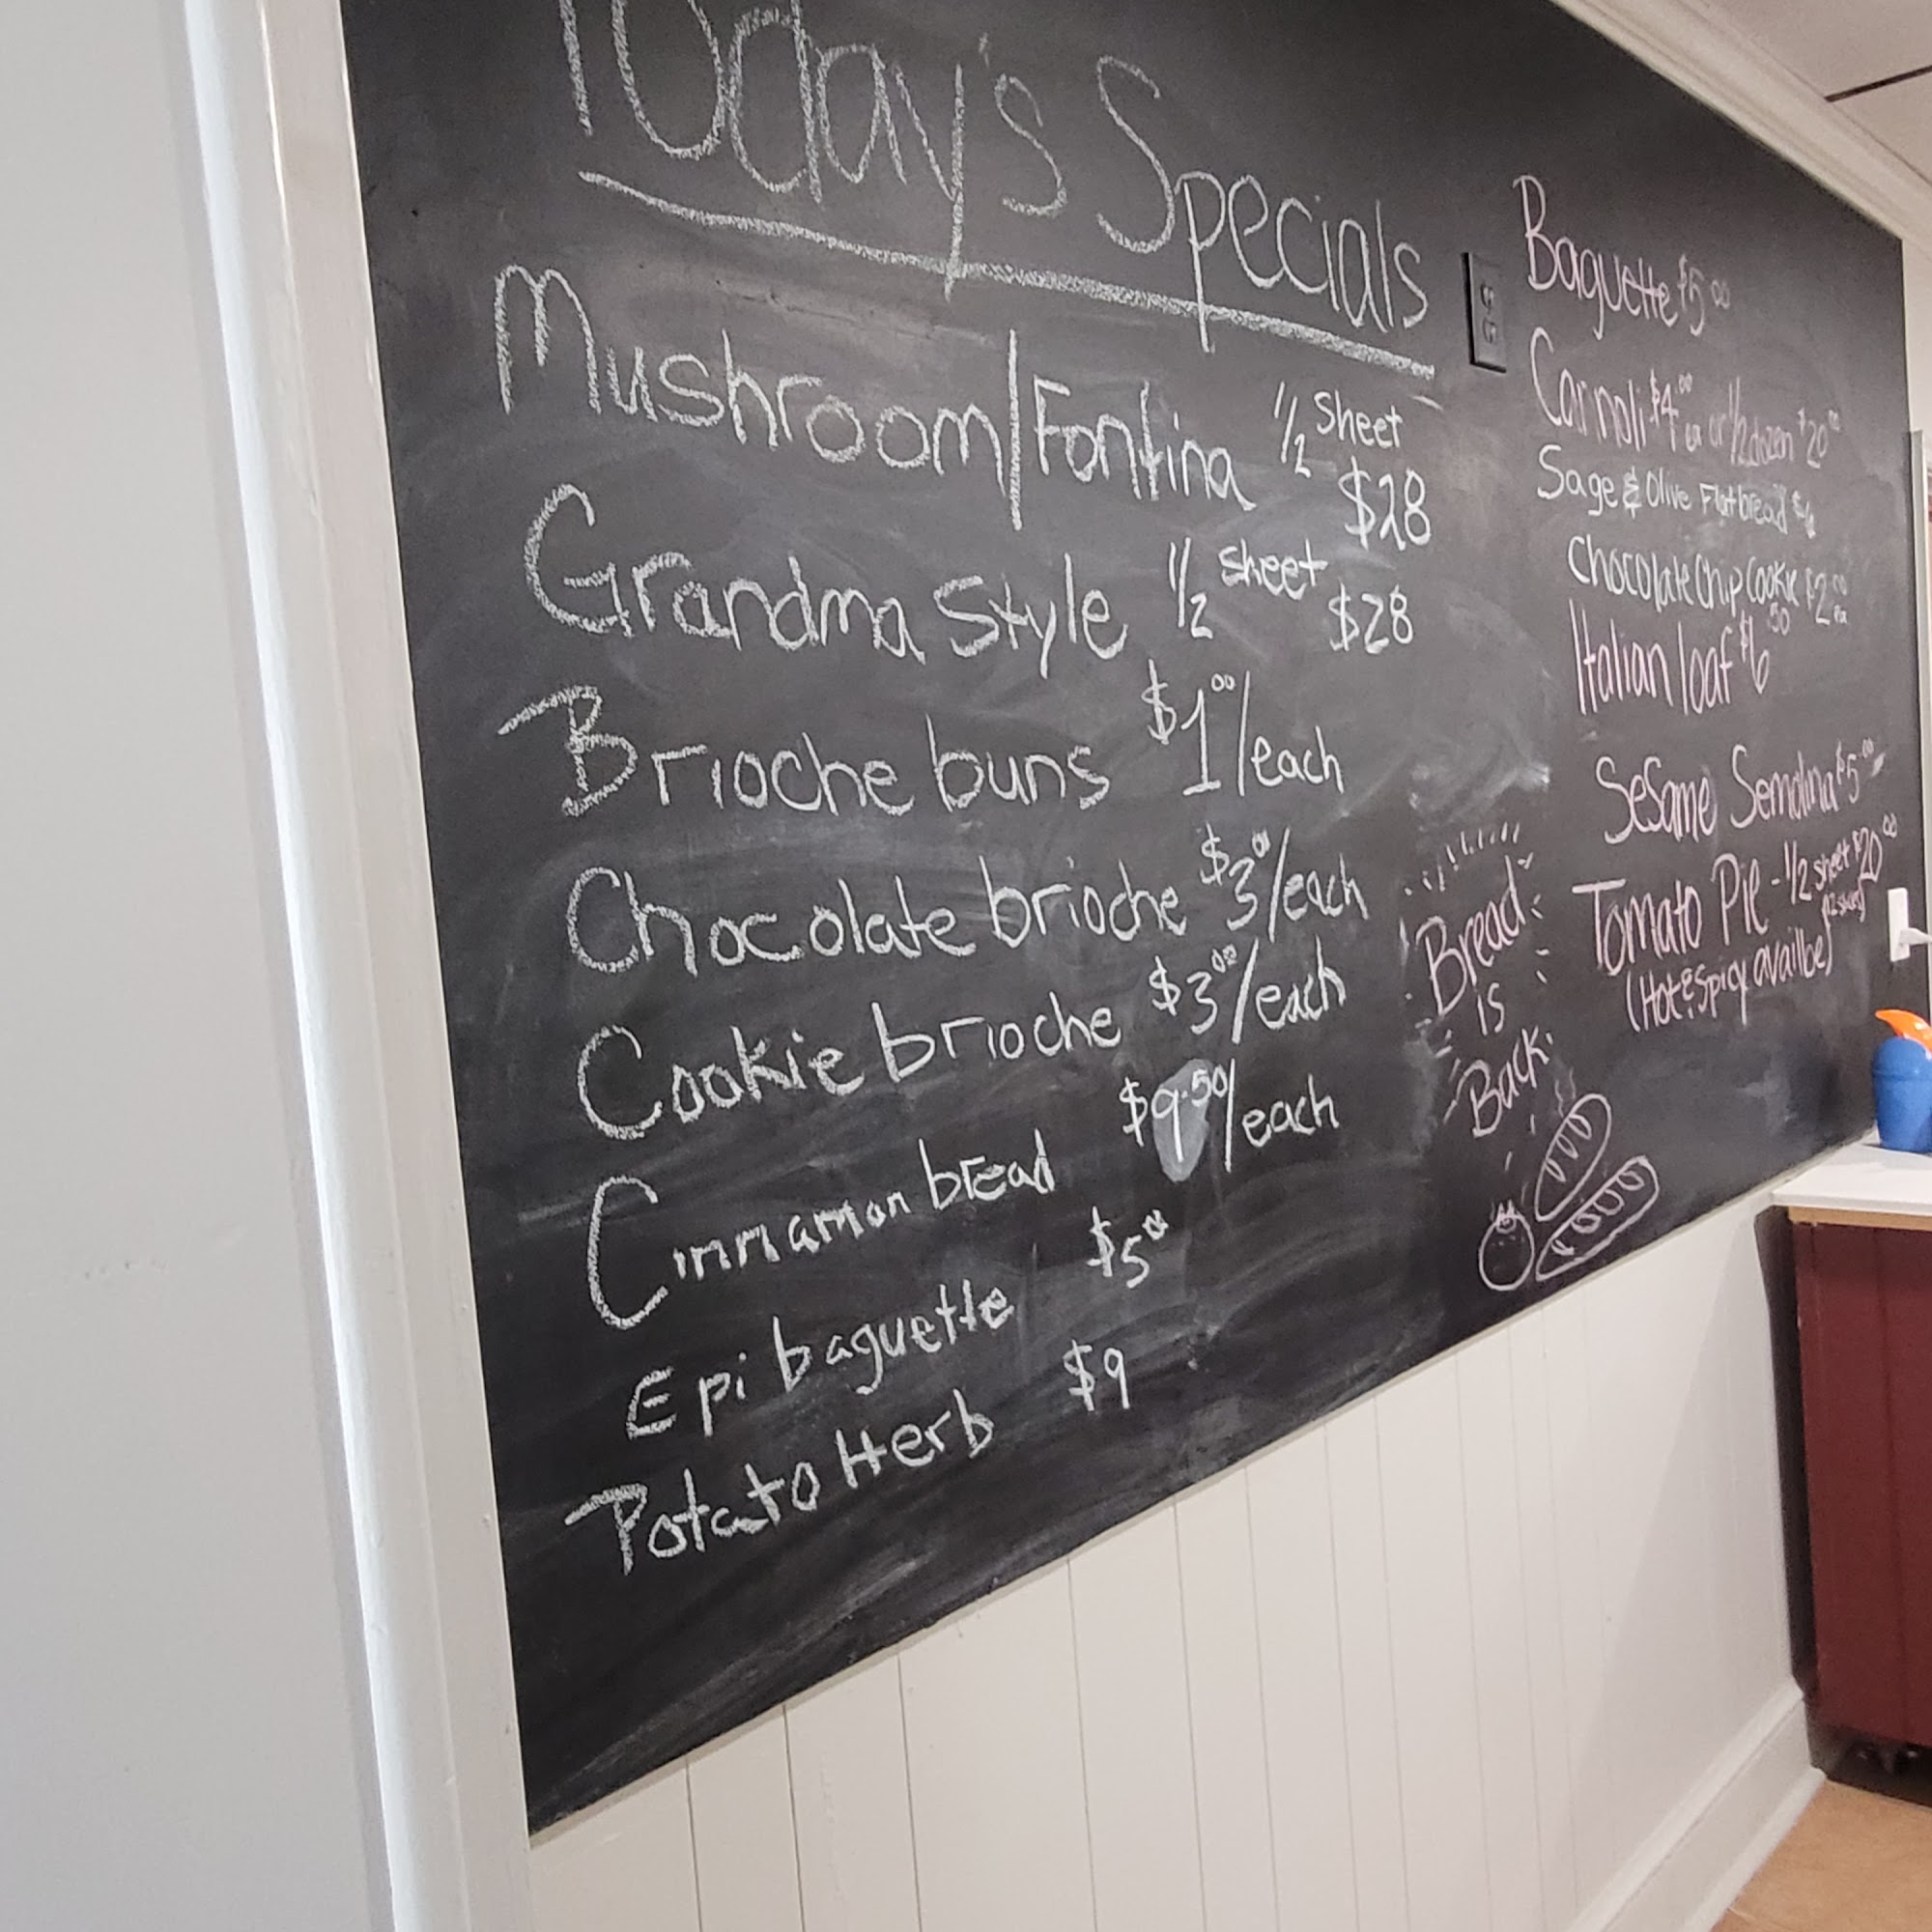 Today's Specials
Mushroom/Fontina 1/2 Sheet $28
Grandma Style 1/2 sheet $28
Brioche buns $1.00/each
Chocolate brioche $3.00/each
Cookie brioche $3.00/each
Cinnamon bread $9.50/each
Epi baguette $5.00
Potato Herb $9
Baguette $5.00
Cannoli $4.00 ea or 1/2 dozen $20.00
Sage & Olive Flatbread $6
Chocolate Chip Cookie $2.00 ea
Italian loaf $6.50
Sesame Semolina $5.00
Tomato Pie - 1/2 sheet $20.00
(Hot & Spicy availbe)
Bread
is
Back